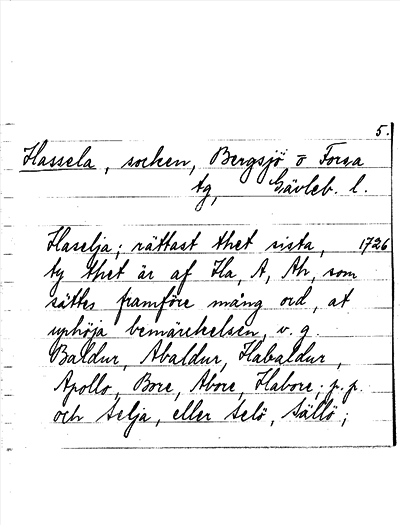 5.
Hassela, socken, Bergsjö o Forsa
tg, Gävleb. l.
Haselja; rättast thet sista, 1726
ty thet är af Ha, A, Ah, som
sättes framföre mång ord, at
uphöja bemärckelsen, v. g.
Baldur, Abaldur, Habaldur,
Apollo, Bore, Abore, Habore; p. p.
och Selja, eller Selö, Sällö;